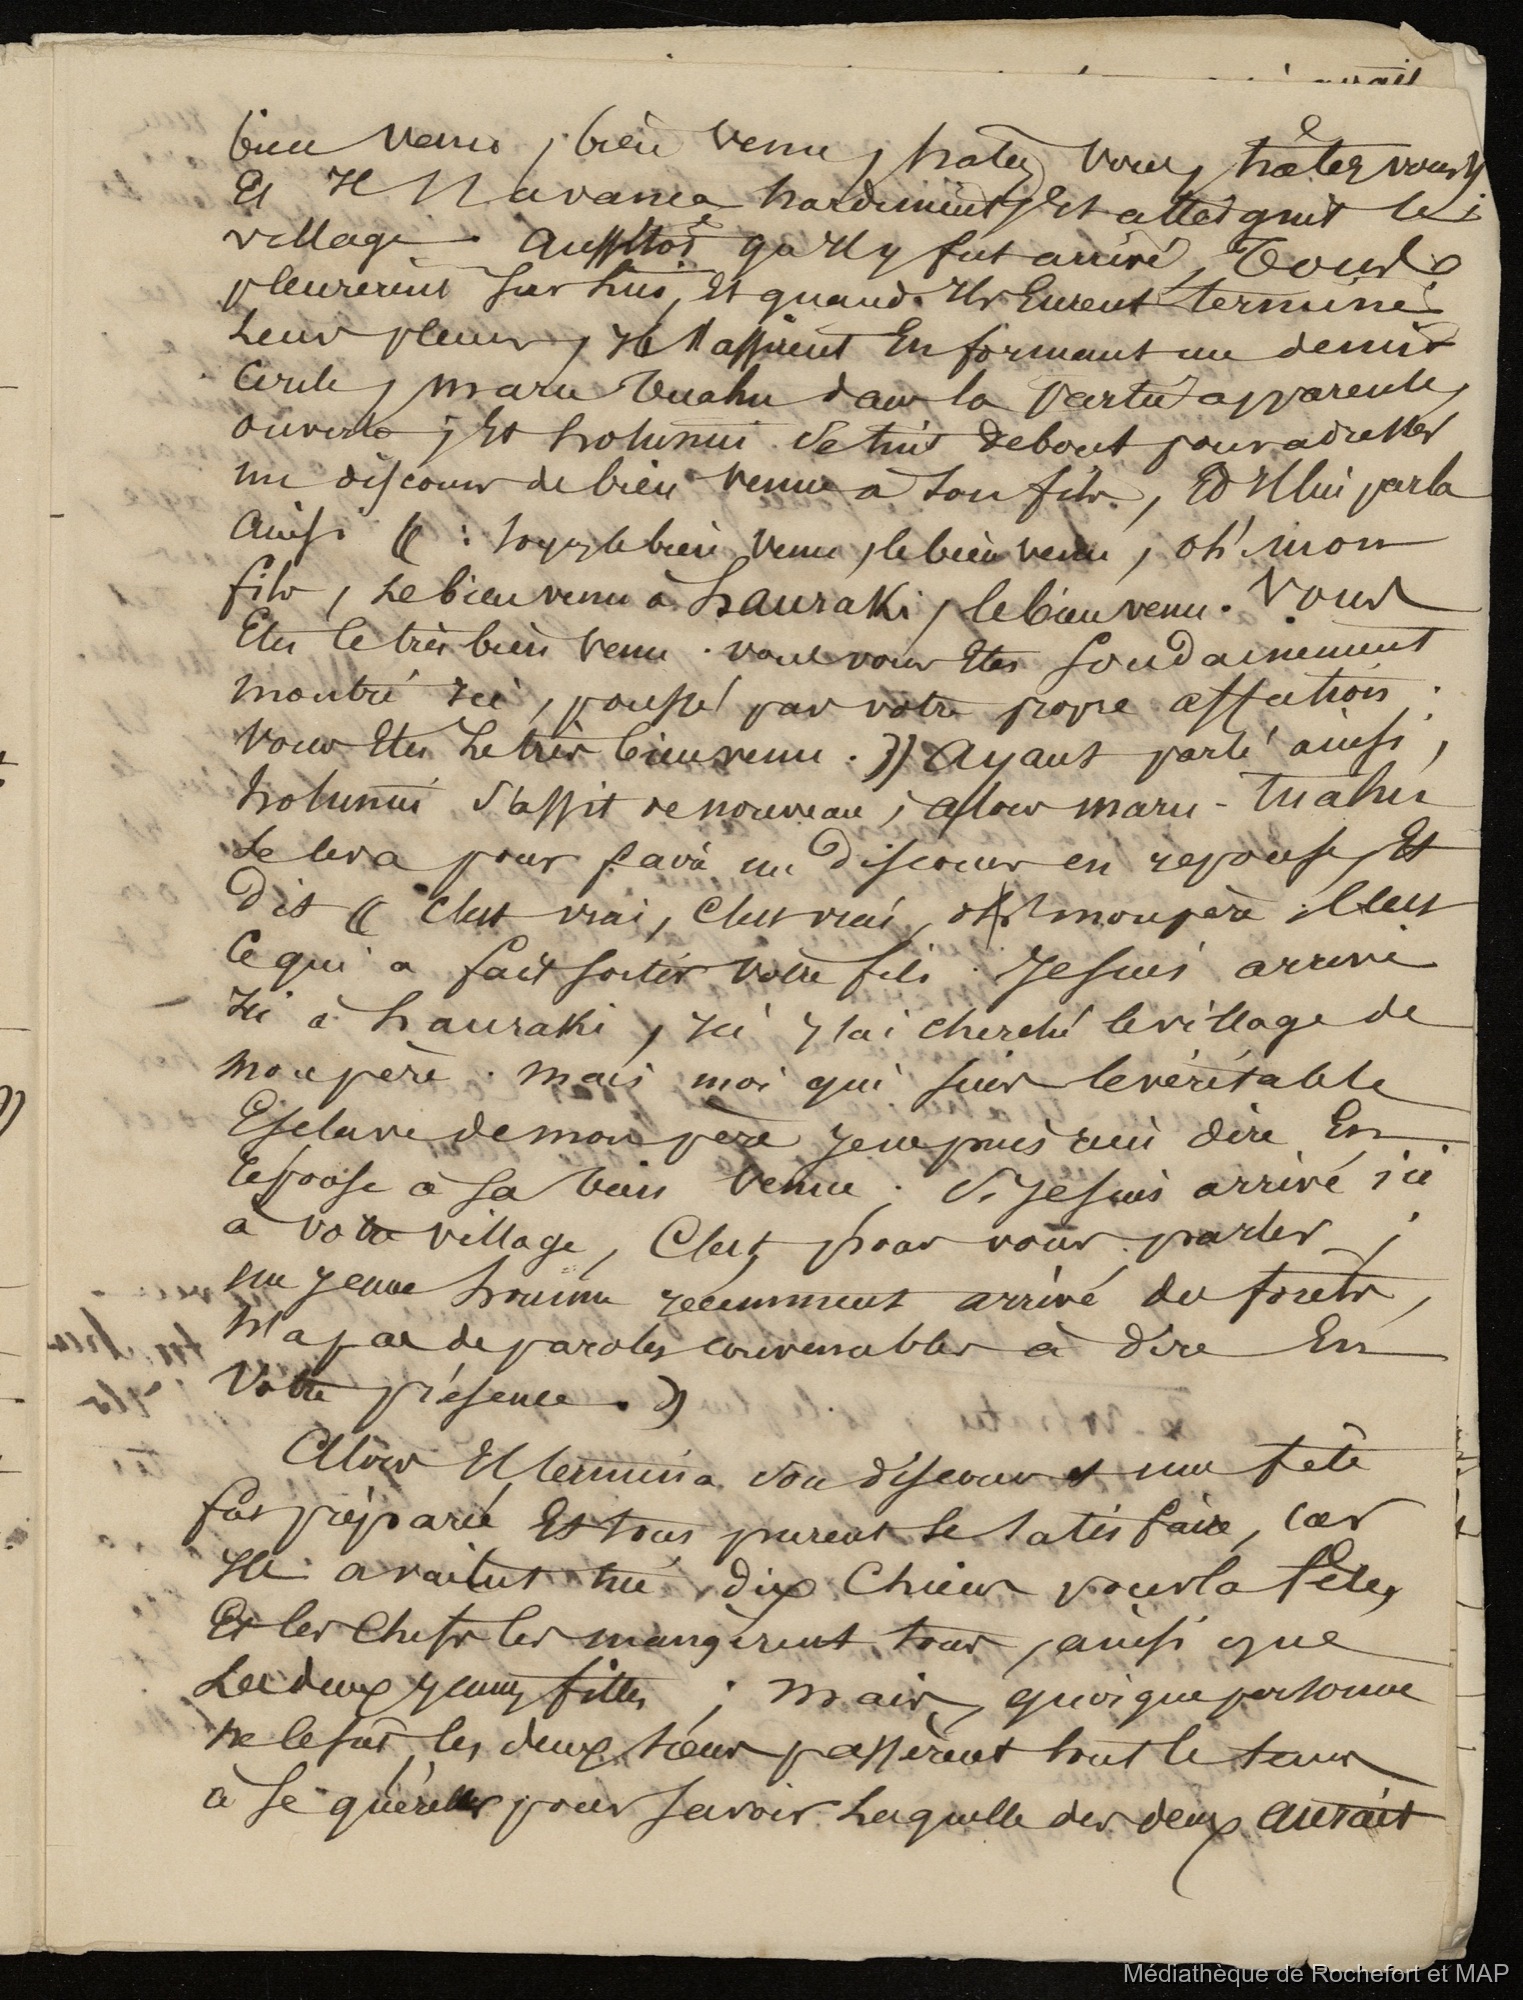 bien venu, bien venu, hatez vous, hâtez vous »
Et Il s'avança hardiment, Et atteignit le
village. Aussitôt qu'Il y fut arrivé, Tous
pleurerent sur lui, Et quand Ils Eurent terminé
Leurs pleurs, Ils s'assirent En formant un demi
Cercle, maru tuahu dans la partie apparente,
ouverte, Et hotunui se tint debout pour adresser
un discours de bien venue à son fils, Et Il lui parla
Ainsi « : soyez le bien venu, le bien venu, oh! mon
fils, Le bien venu à hauraki, le bien venu. Vous
Etes le très bien venu. vous vous Etes soudainement
montré Ici, poussé par votre propre affection ;
vous Etes Le très bien venu. » Ayant parlé ainsi,
hotunui s'assit de nouveau ; alors maru-tuahu
se leva pour faire un discours en reponse, Et
Dit « C'est vrai, C'est vrai, oh! mon père ; C'est
Ce qui a fait sortir votre fils. Je suis arrivé
Ici à hauraki, Ici J'ai cherché le village de
mon père. mais moi qui suis le véritable
Esclave de mon père Je ne puis rien dire En
réponse à sa bien venue ; si Je suis arrivé ici
à votre village, C'est pour vous parler ;
un Jeune homme récemment arrivé des forêts,
n'a pas de paroles convenables à dire En
votre présence. »
Alors Il termina son discours et une fête
fut préparée Et tous purent se satisfaire, car
Ils avaient tué dix Chiens pour la fête,
Et les Chefs les mangèrent tous, ainsi que
Les deux Jeunes filles ; mais, quoique personne
ne le sut, les deux sœurs passèrent tout le tems
à se quereller pour savoir Laquelle des deux aurait
Médiathèque de Rochefort et MAP